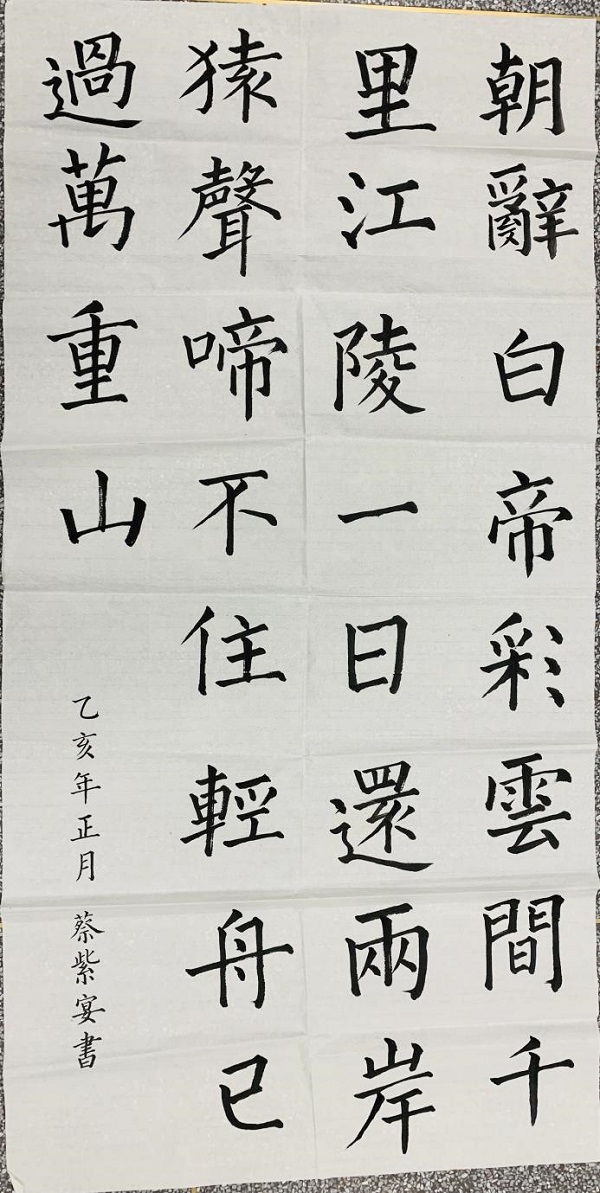 朝辭白帝彩雲間千
里江陵一日還兩岸
猿聲啼不住輕舟已
過萬重山
乙亥年正月 蔡紫宴書